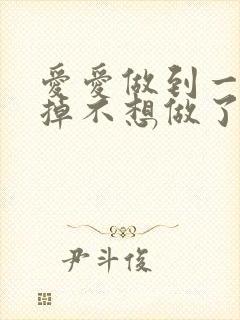 愛愛做到一
掉不想做了
尹斗俊